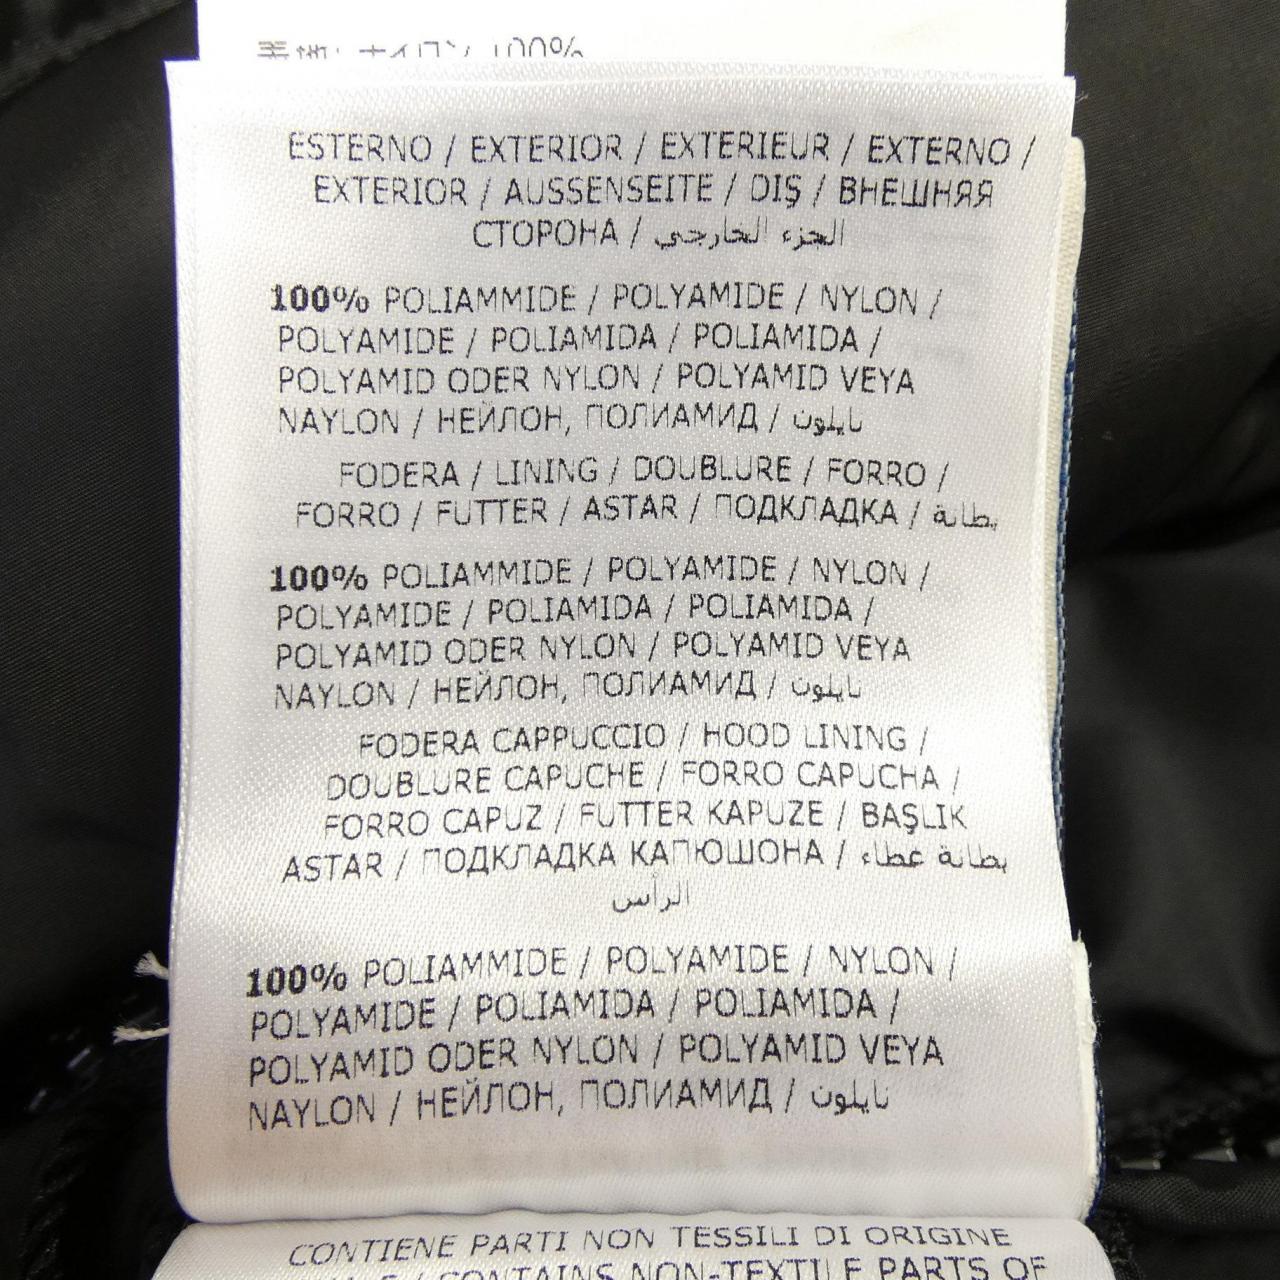 ナイロン 100%
ESTERNO / EXTERIOR / EXTERIEUR / EXTERNO /
EXTERIOR / AUSSENSEITE / DIŞ / ВНЕШНЯЯ
СТОРОНА / الجزء الخارجي
100% POLIAMMIDE / POLYAMIDE / NYLON /
POLYAMIDE / POLIAMIDA / POLIAMIDA /
POLYAMID ODER NYLON / POLYAMID VEYA
NAYLON / НЕЙЛОН, ПОЛИАМИД / نايلون
FODERA / LINING / DOUBLURE / FORRO /
FORRO / FUTTER / ASTAR / ПОДКЛАДКА / بطانة
100% POLIAMMIDE / POLYAMIDE / NYLON /
POLYAMIDE / POLIAMIDA / POLIAMIDA /
POLYAMID ODER NYLON / POLYAMID VEYA
NAYLON / НЕЙЛОН, ПОЛИАМИД / نايلون
FODERA CAPPUCCIO / HOOD LINING /
DOUBLURE CAPUCHE / FORRO CAPUCHA /
FORRO CAPUZ / FUTTER KAPUZE / BAŞLIK
ASTAR / ПОДКЛАДКА КАПЮШОНА / بطانة غطاء
الرأس
100% POLIAMMIDE / POLYAMIDE / NYLON /
POLYAMIDE / POLIAMIDA / POLIAMIDA /
POLYAMID ODER NYLON / POLYAMID VEYA
NAYLON / НЕЙЛОН, ПОЛИАМИД / نايلون
CONTIENE PARTI NON TESSILI DI ORIGINE
/ CONTAINS NON-TEXTILE PARTS OF